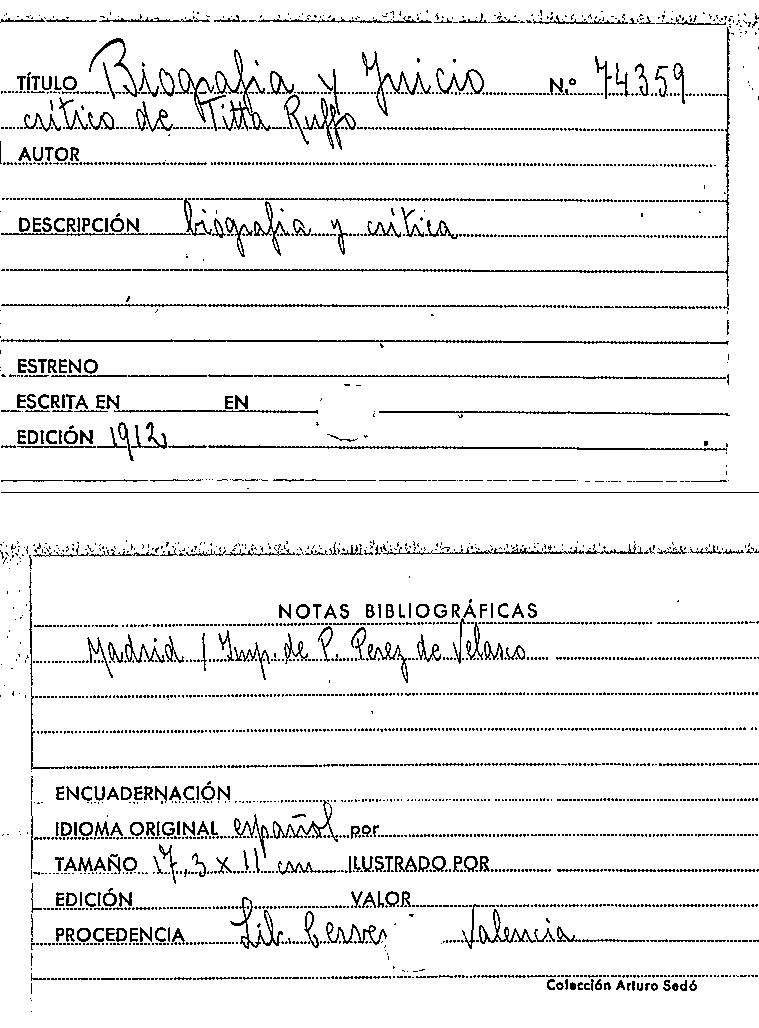 TÍTULO Biografia y Juicio N.º 74359
crítico de Titta Ruffo
AUTOR
DESCRIPCIÓN biografia y crítica
ESTRENO
ESCRITA EN EN
EDICIÓN 1912
NOTAS BIBLIOGRÁFICAS
Madrid / Imp. de P. Perez de Velasco
ENCUADERNACIÓN
IDIOMA ORIGINAL español por
TAMAÑO 17,3 x 11 cm ILUSTRADO POR
EDICIÓN VALOR
PROCEDENCIA Lib. Valencia
Colección Arturo Sedó